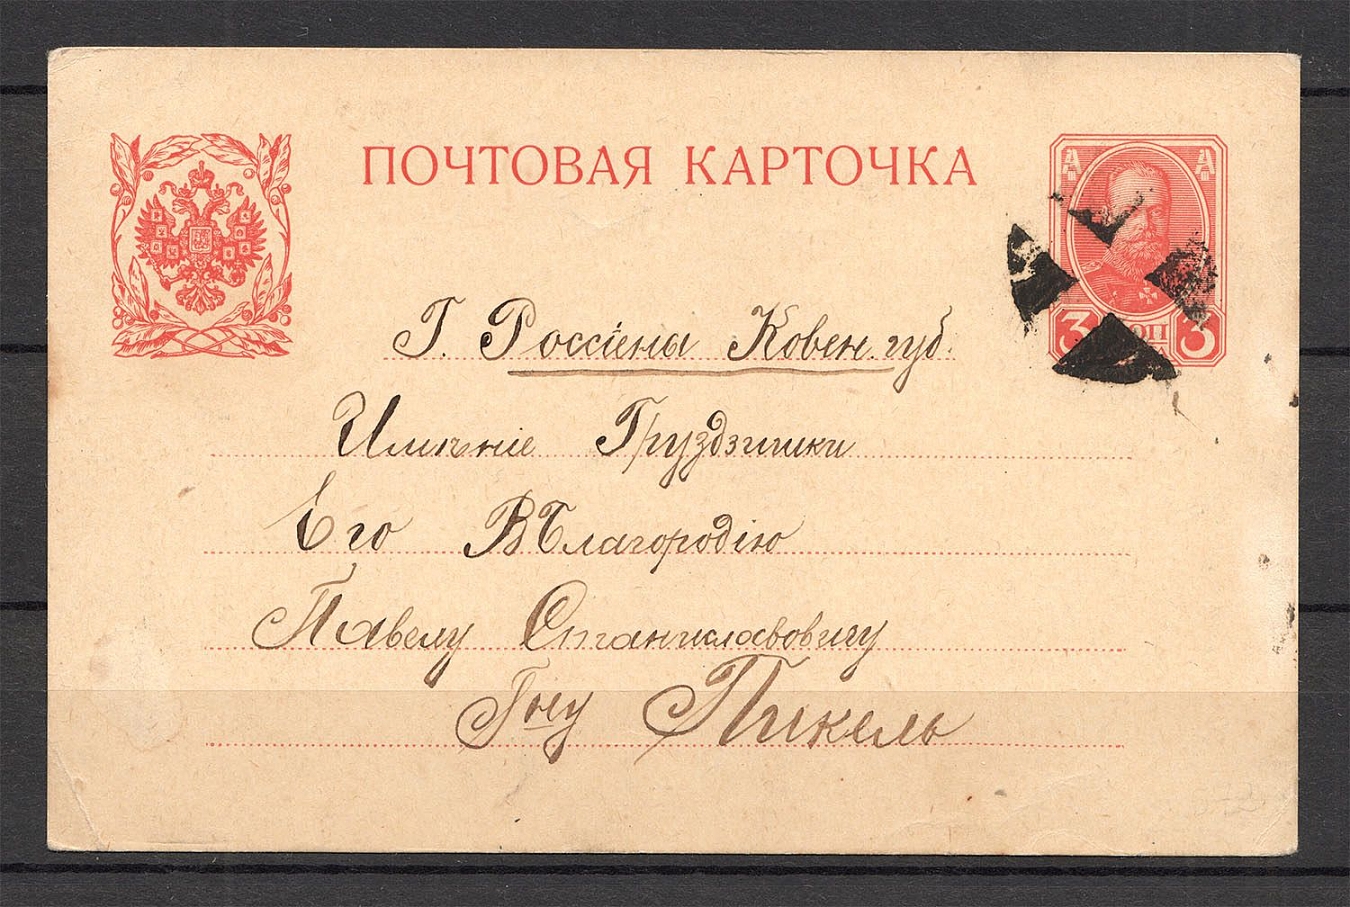 ПОЧТОВАЯ КАРТОЧКА
3 КОП 3
Г. Россіены Ковен. губ.
Имѣніе Груздзишки
Его ВБлагородію
Павелу Станиславовичу
Гну Пикель